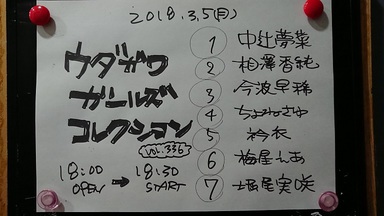 2018.3.5(月)
ウダガワ
ガールズ
コレクション
vol.336
18:00 → 18:30
OPEN START
1 中辻夢菜
2 相澤香純
3 今波早稀
4 ちよみさよ
5 衿衣
6 梅屋えあ
7 堀尾実咲